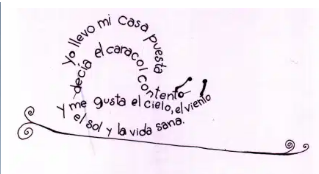 Yo llevo mi casa puesta
decía el caracol contento
y me gusta el cielo, el viento
el sol y la vida sana.